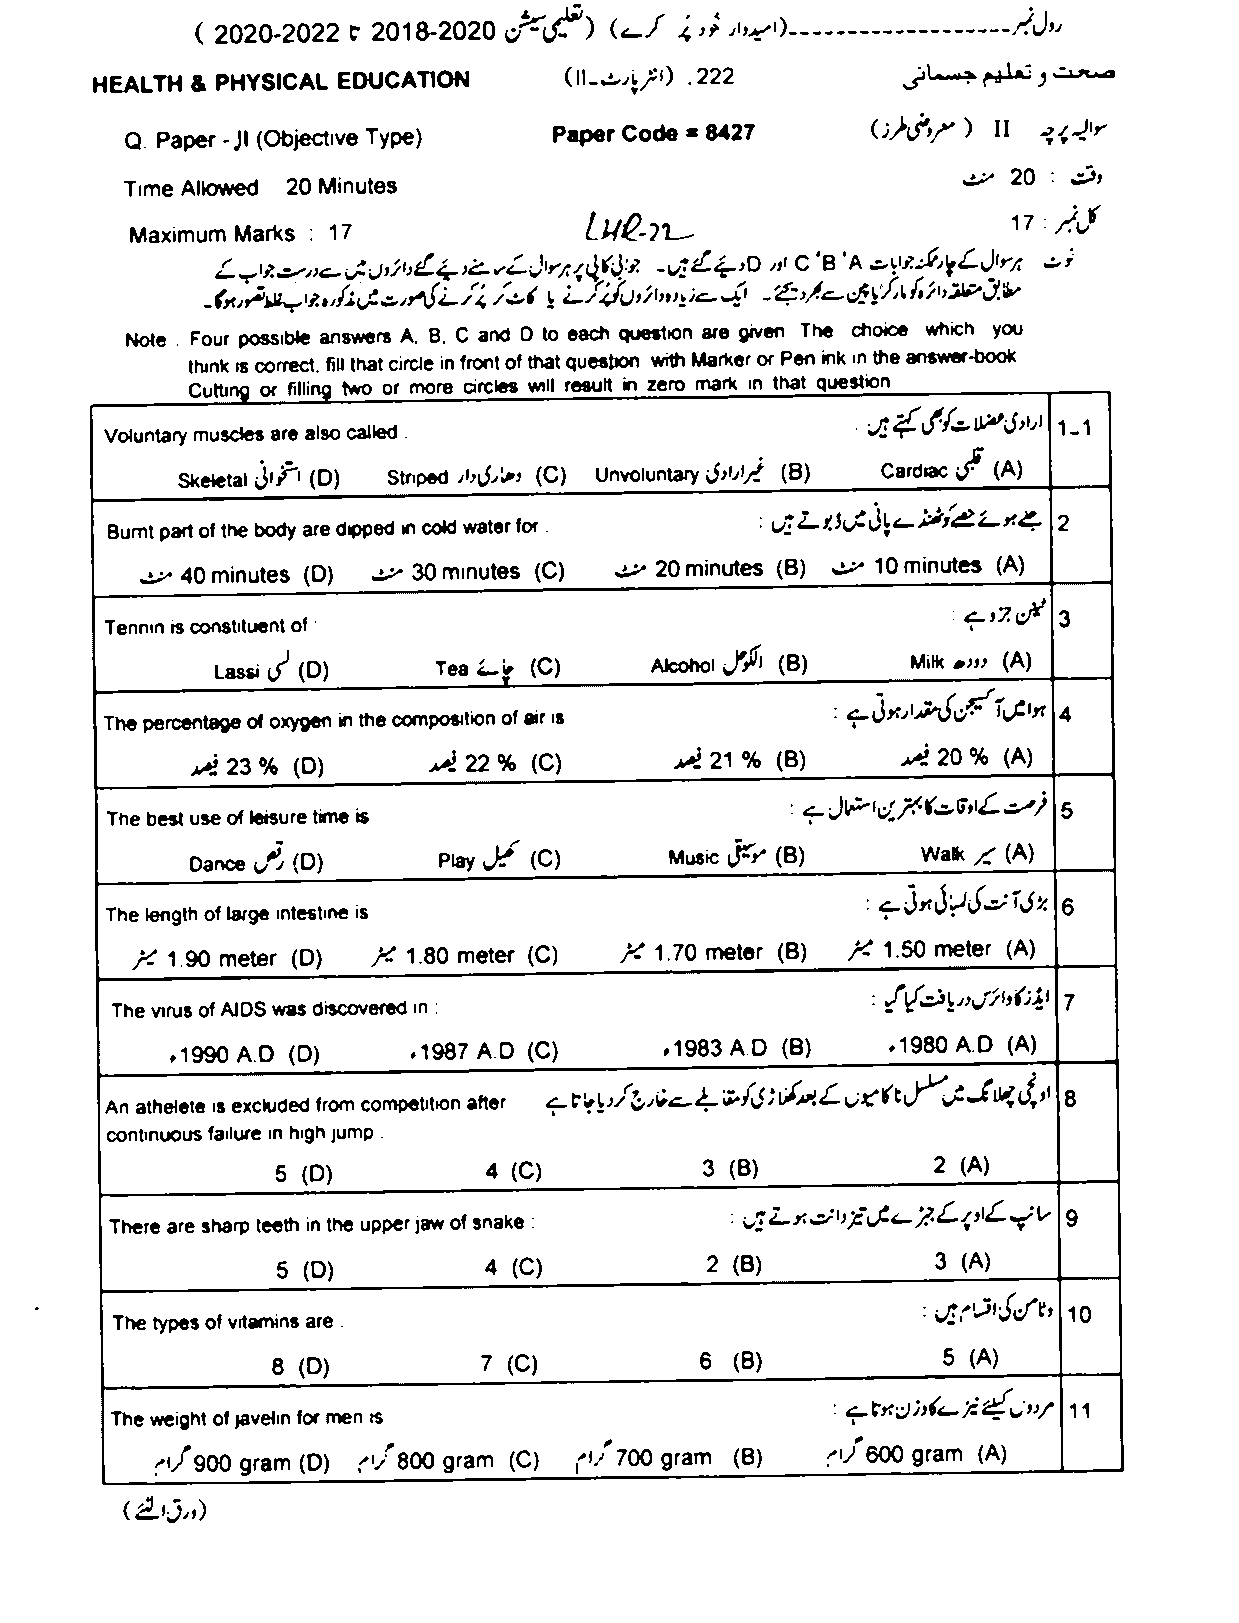 رول نمبر--------------------(امیدوار خود پُر کرے) (تعلیمی سیشن 2020-2018 تا 2022-2020 )
HEALTH & PHYSICAL EDUCATION (انٹر پارٹ-II) .222 صحت و تعلیم جسمانی
Q. Paper - II (Objective Type) Paper Code = 8427 سوالیہ پرچہ II ( معروضی طرز)
Time Allowed 20 Minutes وقت : 20 منٹ
Maximum Marks : 17 LHR-22 کل نمبر : 17
نوٹ ہر سوال کے چار ممکنہ جوابات A ' B ' C اور D دیئے گئے ہیں۔ جوابی کاپی پر ہر سوال کے سامنے دیئے گئے دائروں میں سے درست جواب کے
مطابق متعلقہ دائرہ کو مارکر یا پین سے بھر دیجئے۔ ایک سے زیادہ دائروں کو پُر کرنے یا کاٹ کر پُر کرنے کی صورت میں مذکورہ جواب غلط تصور ہوگا۔
Note . Four possible answers A, B, C and D to each question are given The choice which you
think is correct, fill that circle in front of that question with Marker or Pen ink in the answer-book
Cutting or filling two or more circles will result in zero mark in that question
Voluntary muscles are also called . ارادی عضلات کو بھی کہتے ہیں . 1-1
Skeletal استخوانی (D) Striped دھاری دار (C) Unvoluntary غیر ارادی (B) Cardiac قلبی (A)
Burnt part of the body are dipped in cold water for . جلے ہوئے حصے کو ٹھنڈے پانی میں ڈبوتے ہیں : 2
منٹ 40 minutes (D) منٹ 30 minutes (C) منٹ 20 minutes (B) منٹ 10 minutes (A)
Tennin is constituent of : ٹینن جزو ہے : 3
Lassi لسی (D) Tea چائے (C) Alcohol الکوحل (B) Milk دودھ (A)
The percentage of oxygen in the composition of air is ہوا میں آکسیجن کی مقدار ہوتی ہے : 4
فیصد 23 % (D) فیصد 22 % (C) فیصد 21 % (B) فیصد 20 % (A)
The best use of leisure time is فرصت کے اوقات کا بہترین استعمال ہے : 5
Dance رقص (D) Play کھیل (C) Music موسیقی (B) Walk سیر (A)
The length of large intestine is بڑی آنت کی لمبائی ہوتی ہے : 6
میٹر 1.90 meter (D) میٹر 1.80 meter (C) میٹر 1.70 meter (B) میٹر 1.50 meter (A)
The virus of AIDS was discovered in : ایڈز کا وائرس دریافت کیا گیا : 7
ء1990 A.D (D) ء1987 A.D (C) ء1983 A.D (B) ء1980 A.D (A)
An athelete is excluded from competition after اونچی چھلانگ میں مسلسل ناکامیوں کے بعد کھلاڑی کو مقابلے سے خارج کر دیا جاتا ہے 8
continuous failure in high jump .
5 (D) 4 (C) 3 (B) 2 (A)
There are sharp teeth in the upper jaw of snake : سانپ کے اوپر کے جبڑے میں تیز دانت ہوتے ہیں : 9
5 (D) 4 (C) 2 (B) 3 (A)
The types of vitamins are . وٹامن کی اقسام ہیں : 10
8 (D) 7 (C) 6 (B) 5 (A)
The weight of javelin for men is مردوں کیلئے نیزے کا وزن ہوتا ہے : 11
گرام 900 gram (D) گرام 800 gram (C) گرام 700 gram (B) گرام 600 gram (A)
(ورق الٹئے)